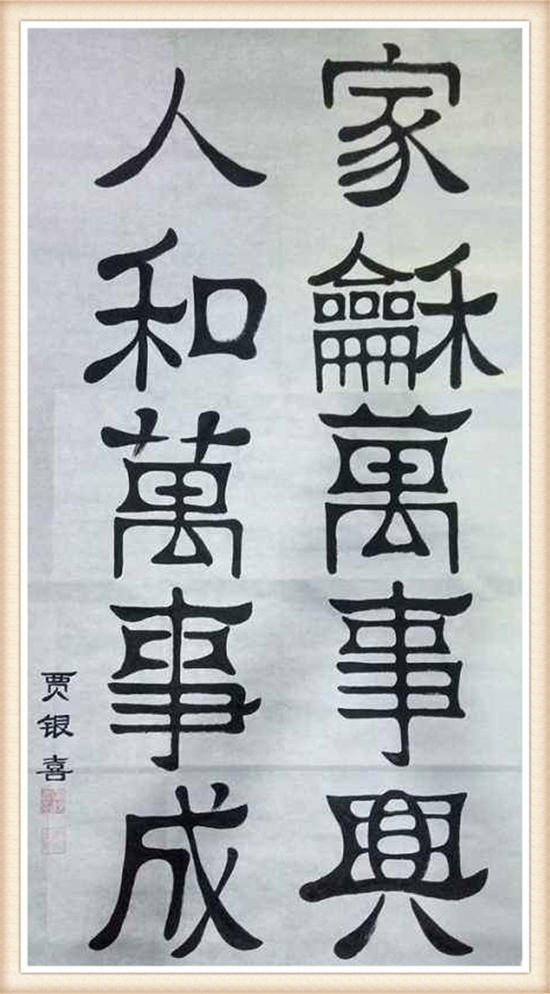 家龢萬事興
人和萬事成
贾银喜